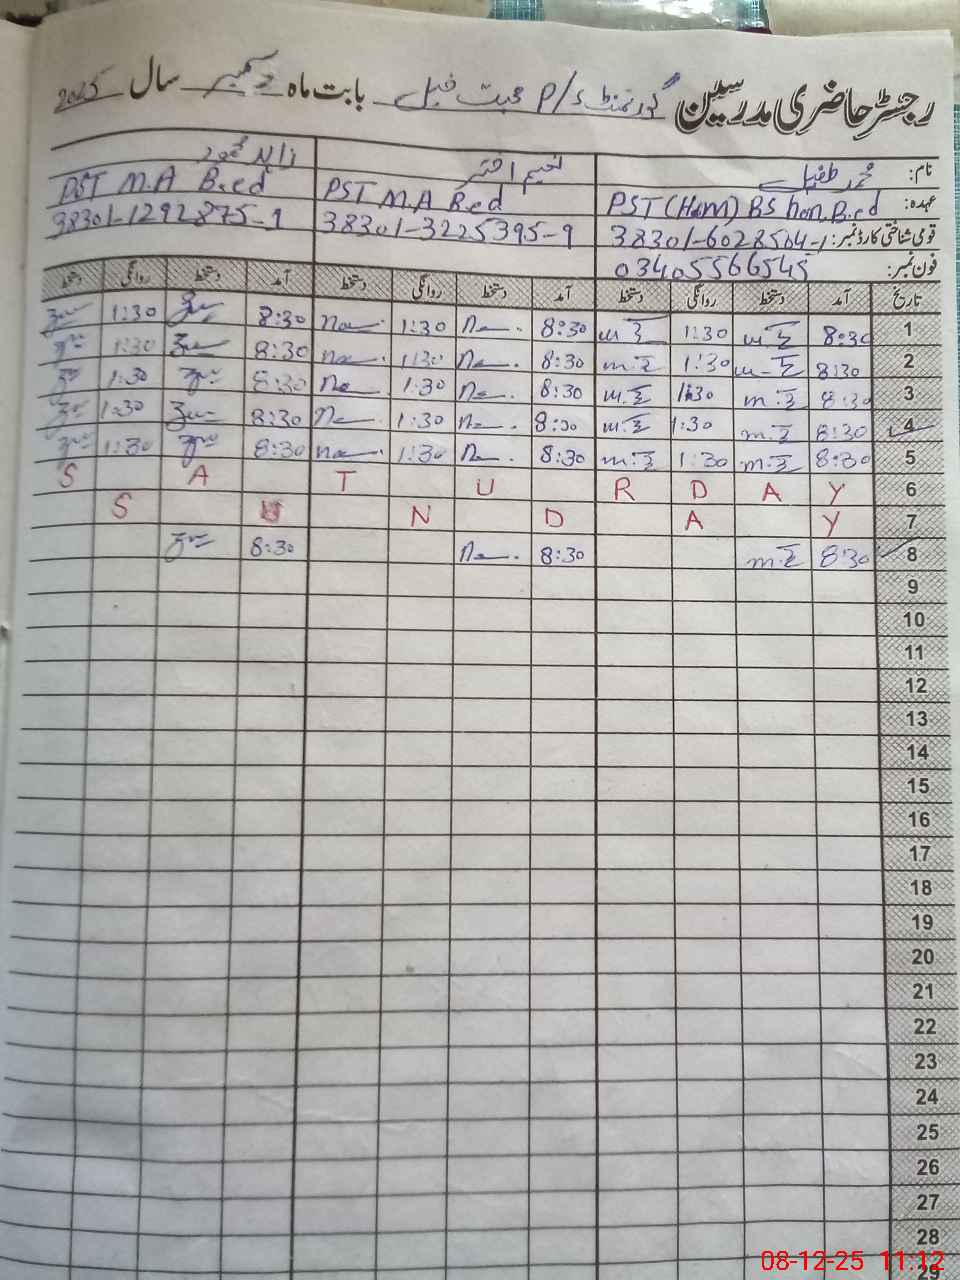 رجسٹر حاضری مدرسین گورنمنٹ P/S محبت خیل بابت ماہ دسمبر سال 2025
نام: محمد طفیل نعیم اختر زاہد محمود
عہدہ: PST (H&M) BS hon. B.ed PST M.A B.ed PST M.A B.ed
قومی شناختی کارڈ نمبر: 38301-6028504-1 38301-3225395-9 38301-1292875-9
فون نمبر: 03405566545
تاریخ آمد دستخط روانگی دستخط آمد دستخط روانگی دستخط آمد دستخط روانگی دستخط
1 8:30 1:30 8:30 1:30 8:30 1:30
2 8:30 1:30 8:30 1:30 8:30 1:30
3 8:30 1:30 8:30 1:30 8:30 1:30
4 8:30 1:30 8:30 1:30 8:30 1:30
5 8:30 1:30 8:30 1:30 8:30 1:30
S A T U R D A Y 6
S U N D A Y 7
8 8:30 8:30 8:30
9
10
11
12
13
14
15
16
17
18
19
20
21
22
23
24
25
26
27
28
29
08-12-25 11:12